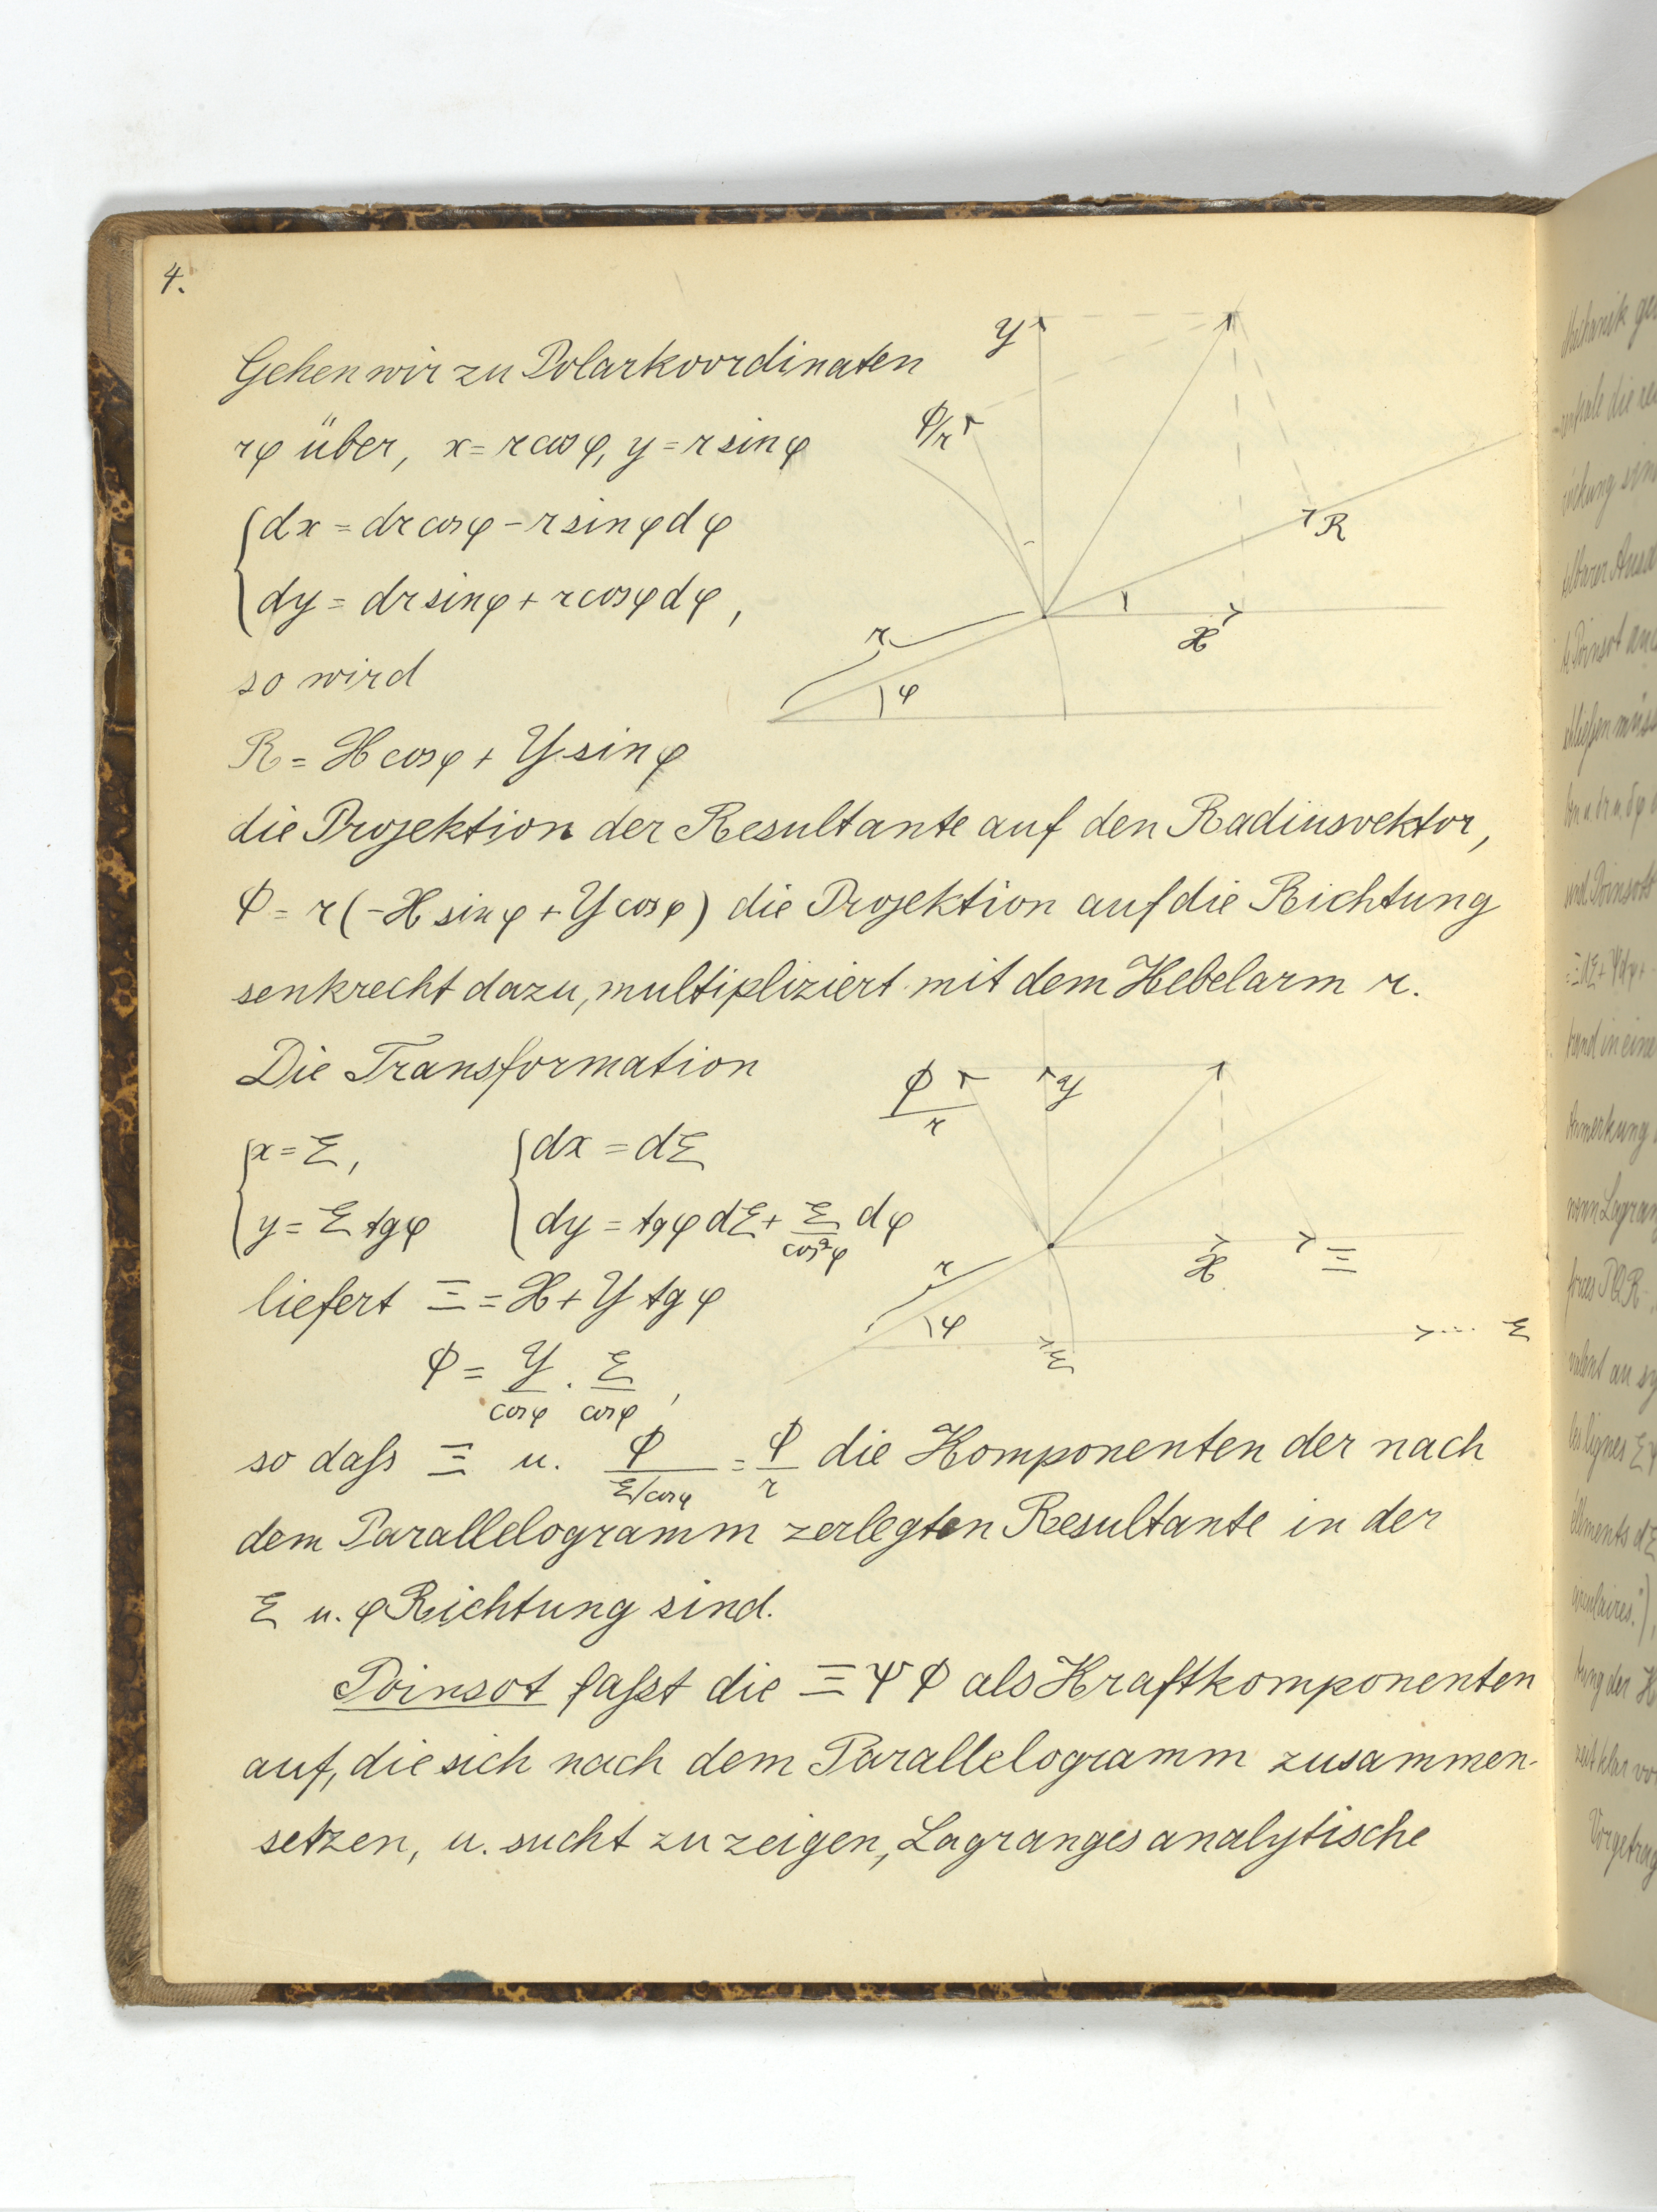 4.
Gehen wir zu Polarkoordinaten
rφ über, x = r cos φ, y = r sin φ
dx = dr cos φ − r sin φ dφ
dy = dr sin φ + r cos φ dφ,
so wird
R = X cos φ + Y sin φ
die Projektion der Resultante auf den Radiusvektor,
Φ = r (−X sin φ + Y cos φ) die Projektion auf die Richtung
senkrecht dazu, multipliziert mit dem Hebelarm r.
Die Transformation
x = ξ, dx = dξ
y = ξ tg φ dy = tg φ dξ + ξ/cos²φ dφ
liefert Ξ = X + Y tg φ
Φ = Y/cos φ · ξ/cos φ,
so daſs Ξ u. Φ/(ξ/cos φ) = Φ/r die Komponenten der nach
dem Parallelogramm zerlegten Resultante in der
ξ u. φ Richtung sind.
Poinsot faſst die Ξ Ψ Φ als Kraftkomponenten
auf, die sich nach dem Parallelogramm zusammen-
setzen, u. sucht zu zeigen, Lagranges analytische
Y
Φ/r
R
X
r
φ
Φ/r
Y
X
Ξ
r
φ
ξ
ξ